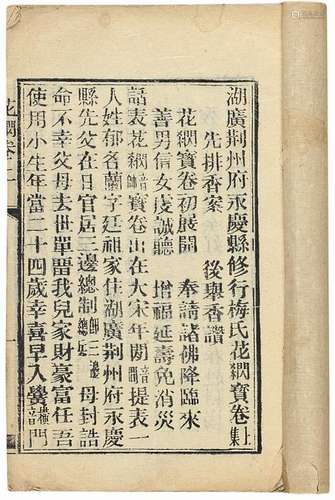 湖廣荆州府永慶縣修行梅氏花繝寶卷上集
先排香案　後舉香讚
花繝寶卷初展開　奉請諸佛降臨來
善男信女虔誠聽　增福延壽免消災
話表花繝音寶卷出在大宋年間提表一
人姓郁名蘭字廷祖家住湖廣荆州府永慶
縣先父在日官居三邊總制母封誥
命不幸父母去世單畱我兒家財豪富任吾
使用小生年當二十四歲幸喜早入黌音橫門
花繝卷上